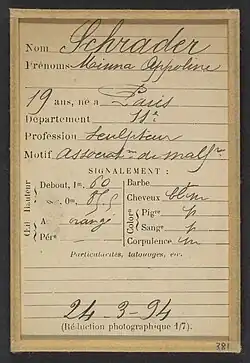 Nom Schrader
Prénoms Minna Appoline
19 ans, né à Paris
Département 11e
Profession sculpteur
Motif Associat.on de malf.rs
SIGNALEMENT :
(Œil Hauteur
Debout, 1m, 60
0m, 85,5
A orangé
Pér
Barbe
Cheveux
Colon
Pigre p
Sangre p
Corpulence m
Particularités, tatouages, etc.
24-3-94
(Réduction photographique 1/7).
381